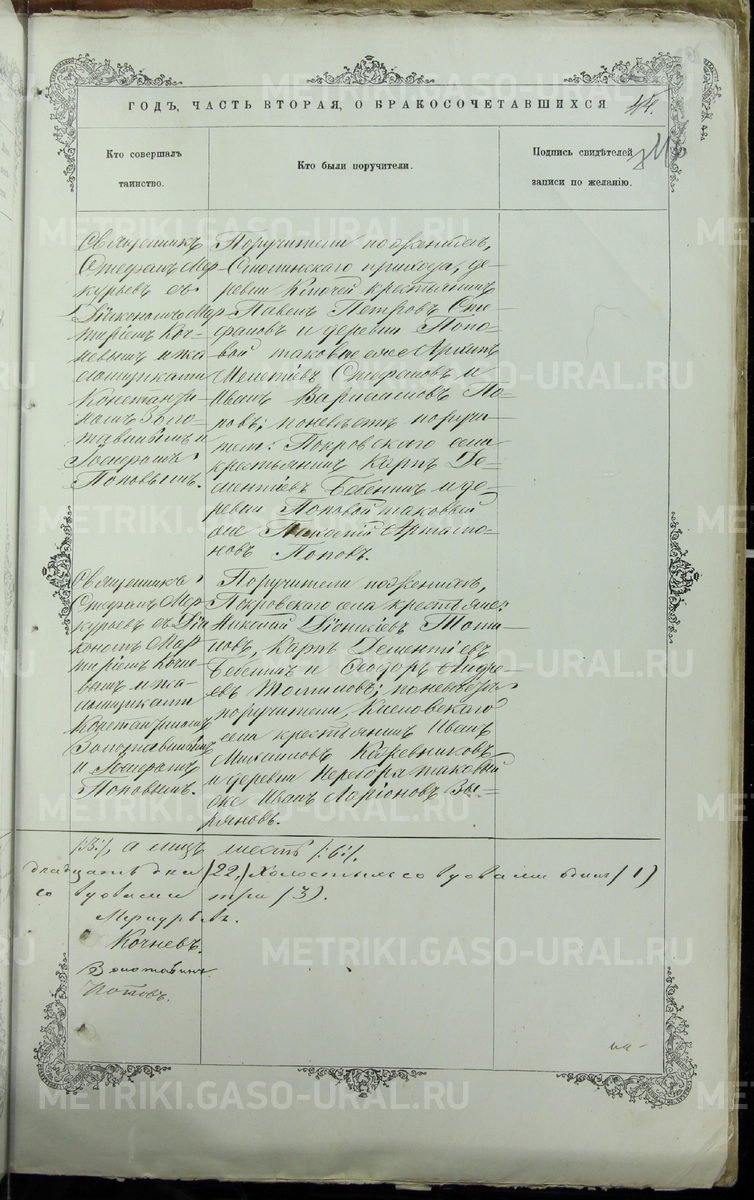 ГОДЪ, ЧАСТЬ ВТОРАЯ, О БРАКОСОЧЕТАВШИХСЯ
44.
Кто совершалъ
таинство.
Кто были поручители.
Подпись свидѣтелей
записи по желанію.
Священникъ
Стефанъ Мер-
курьевъ съ
Діякономъ Мар-
тиріемъ Коч-
невымъ и
Константи-
номъ Золо-
тавинымъ и
Поповымъ.
Поручители по женихѣ,
прихода, де-
ревни Ключей крестьянинъ
Павелъ Петровъ Сте-
фановъ и деревни Попо-
вой таковые же Архипъ
Мелетіевъ Стефановъ и
Иванъ Варламовъ По-
повъ; по невѣстѣ поручи-
тели: Покровскаго села
крестьянинъ Карпъ Де-
ментіевъ Бебенинъ и де-
ревни Поповой таковый
же Алексій Артамо-
новъ Поповъ.
Священникъ
Стефанъ Мер-
курьевъ съ Дія-
кономъ Мар-
тиріемъ Кочне-
вымъ и
Константиномъ
Золотавинымъ
и
Поповымъ.
Поручители по женихѣ,
Покровскаго села крестьяне:
Николай
Карпъ Дементіевъ
Бебенинъ и Ѳеодоръ Андре-
евъ по невѣстѣ
поручители Кисловскаго
села крестьянинъ Иванъ
Михаиловъ Кожевниковъ
и деревни Перебора таковый
же Иванъ Ларіоновъ Зы-
ряновъ.
а лицъ шесть /:6:/.
двадцать два /22/, холостыхъ со вдовами одинъ /1/
со вдовами три /3/.
Меркурьевъ.
Кочневъ.
Золотавинъ
Поповъ.
METRIKI.GASO-URAL.RU